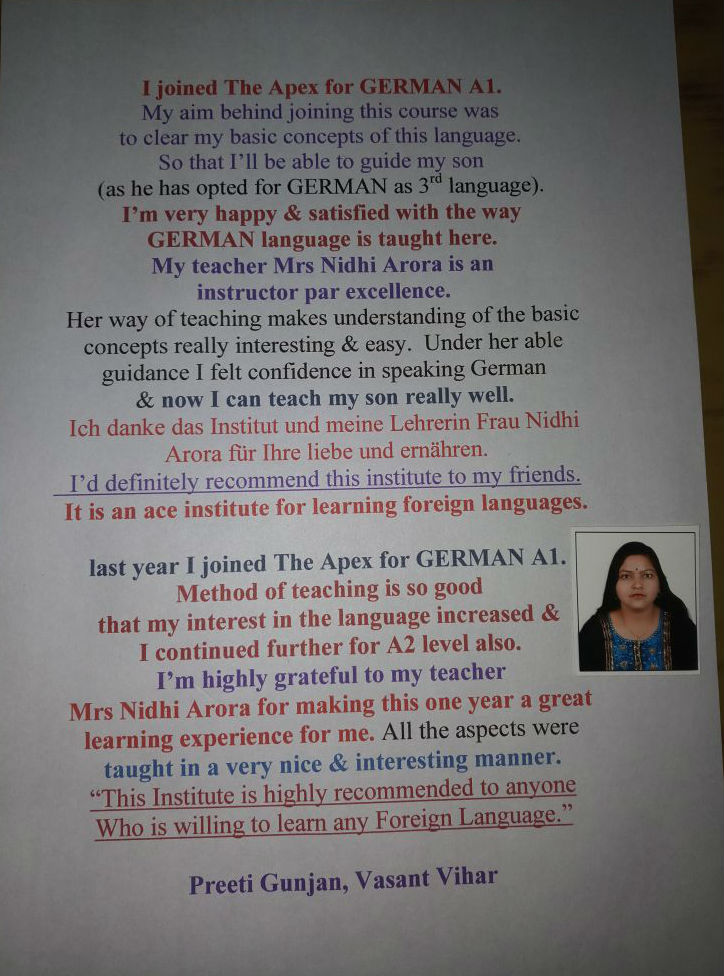 I joined The Apex for GERMAN A1.
My aim behind joining this course was
to clear my basic concepts of this language.
So that I'll be able to guide my son
(as he has opted for GERMAN as 3rd language).
I'm very happy & satisfied with the way
GERMAN language is taught here.
My teacher Mrs Nidhi Arora is an
instructor par excellence.
Her way of teaching makes understanding of the basic
concepts really interesting & easy. Under her able
guidance I felt confidence in speaking German
& now I can teach my son really well.
Ich danke das Institut und meine Lehrerin Frau Nidhi
Arora für Ihre liebe und ernähren.
I'd definitely recommend this institute to my friends.
It is an ace institute for learning foreign languages.
last year I joined The Apex for GERMAN A1.
Method of teaching is so good
that my interest in the language increased &
I continued further for A2 level also.
I'm highly grateful to my teacher
Mrs Nidhi Arora for making this one year a great
learning experience for me. All the aspects were
taught in a very nice & interesting manner.
“This Institute is highly recommended to anyone
Who is willing to learn any Foreign Language.”
Preeti Gunjan, Vasant Vihar